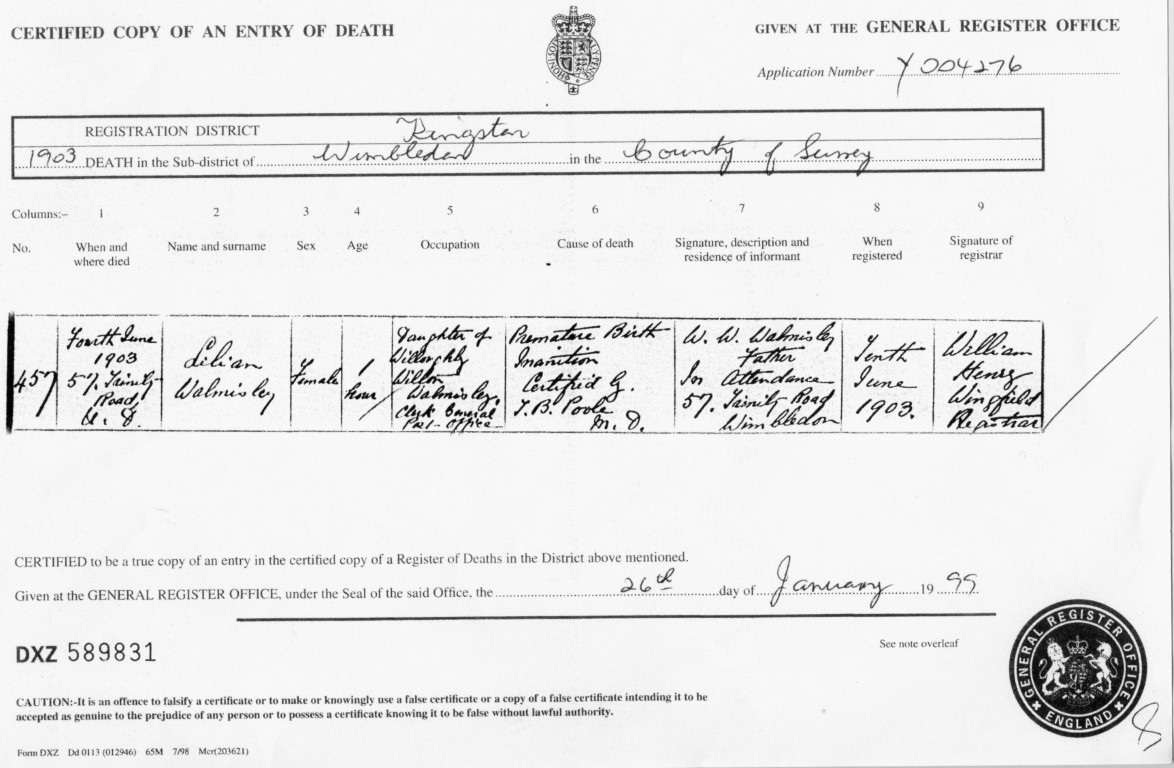 CERTIFIED COPY OF AN ENTRY OF DEATH
GIVEN AT THE GENERAL REGISTER OFFICE
Application Number Y 004276
REGISTRATION DISTRICT Kingston
1903 DEATH in the Sub-district of Wimbledon in the County of Surrey
Columns:- 1 2 3 4 5 6 7 8 9
No. When and where died Name and surname Sex Age Occupation Cause of death Signature, description and residence of informant When registered Signature of registrar
457
Fourth June
1903
57. Trinity
Road,
U. D.
Lilian
Walmisley
Female
1
hour
Daughter of
Willoughby
Walmisley.
Clerk General
Post-Office
Premature Birth
Inanition
Certified by.
T. B. Poole
M. D.
W. W. Walmisley
Father
In Attendance
57. Trinity Road
Wimbledon
Tenth
June
1903.
William
Henry
Wingfield
Registrar
CERTIFIED to be a true copy of an entry in the certified copy of a Register of Deaths in the District above mentioned.
Given at the GENERAL REGISTER OFFICE, under the Seal of the said Office, the 26th day of January 19 99
See note overleaf
DXZ 589831
GENERAL REGISTER OFFICE
ENGLAND
CAUTION:-It is an offence to falsify a certificate or to make or knowingly use a false certificate or a copy of a false certificate intending it to be
accepted as genuine to the prejudice of any person or to possess a certificate knowing it to be false without lawful authority.
Form DXZ Dd 0113 (012946) 65M 7/98 Mcr(203621)